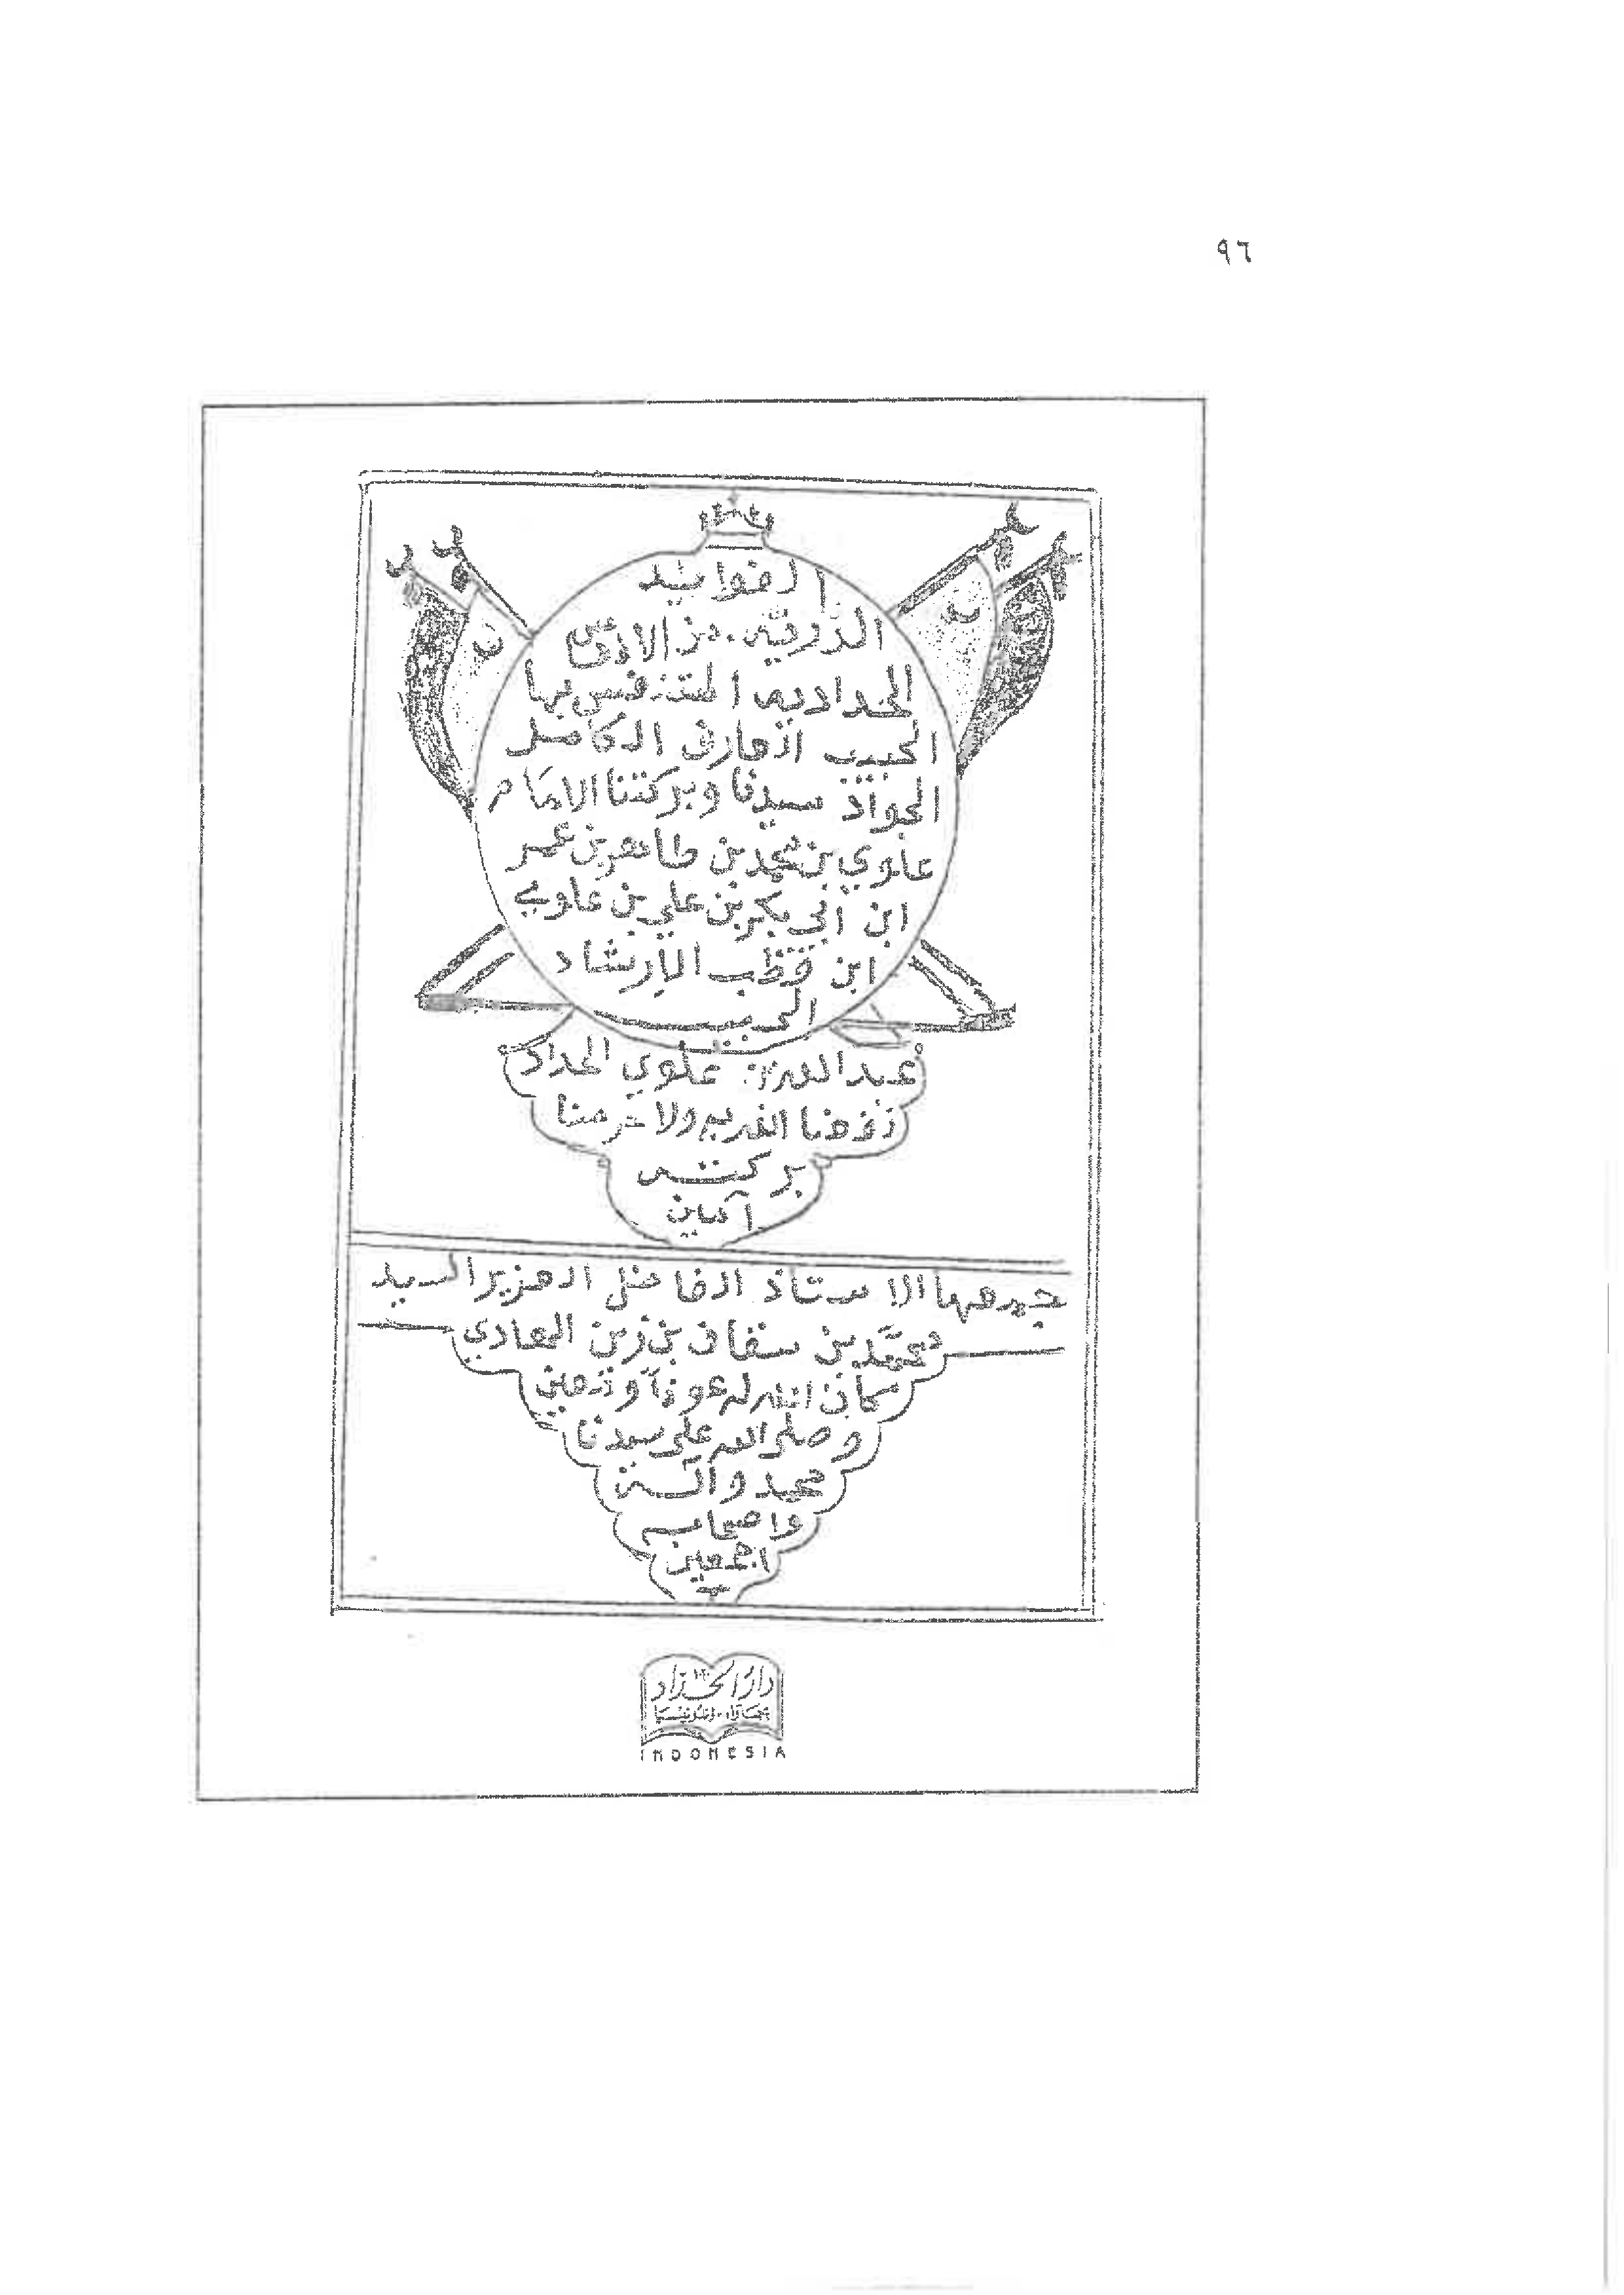 ٩٦
الفوائد
الذوقية من الانفس
الحدادية المتنفس بها
الحبيب العارف الكامل
الجواد سيدنا وبركتنا الامام
علوي بن محمد بن طاهر بن عمر
ابن أبي بكر بن علي بن علوي
ابن قطب الارشاد
الحبيب
عبدالله بن علوي الحداد
نفعنا الله به ولا حرمنا
بركته
آمين
جمعها الاستاذ الفاضل العزيز السيد
محمد بن سقاف بن زين الهادي
كان الله له عونا ومعين
وصلى الله على سيدنا
محمد وآله
واصحابه
اجمعين
دار الحداد
INDONESIA